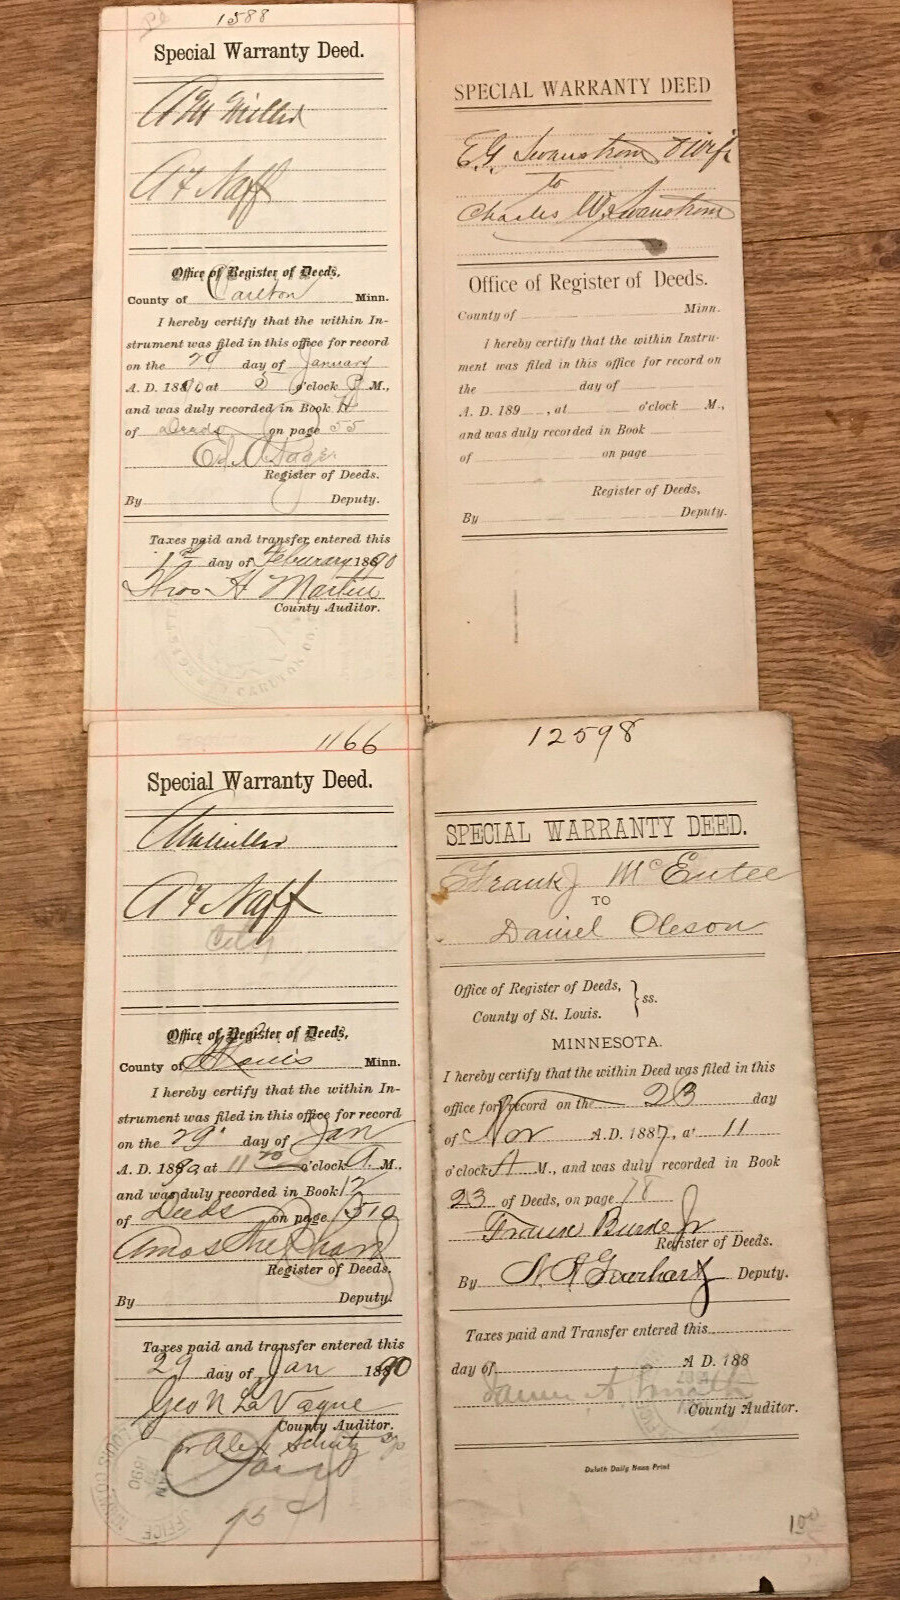 1588
Special Warranty Deed.
Miller
A F Naff
Office of Register of Deeds,
County of Carlton Minn.
I hereby certify that the within In-
strument was filed in this office for record
on the 29 day of January
A. D. 1890 at 3 o'clock P M.,
and was duly recorded in Book H
of deeds on page 55
Register of Deeds.
By Deputy.
Taxes paid and transfer entered this
1st day of Feburary 1890
Thos H Martin
County Auditor.
SPECIAL WARRANTY DEED
E.G. Swanstrom & Wife
to
Charles W. Swanstrom
Office of Register of Deeds.
County of Minn.
I hereby certify that the within Instru-
ment was filed in this office for record on
the day of
A. D. 189 , at o'clock M.,
and was duly recorded in Book
of on page
Register of Deeds,
By Deputy.
1166
Special Warranty Deed.
A F Naff
City
Office of Register of Deeds,
County of St Louis Minn.
I hereby certify that the within In-
strument was filed in this office for record
on the 29 day of Jan
A. D. 1890 at 11 o'clock A M.,
and was duly recorded in Book 12
of Deeds on page 510
Amos Shephard
Register of Deeds.
By Deputy.
Taxes paid and transfer entered this
29 day of Jan 1890
Geo N LaVaque
County Auditor.
12598
SPECIAL WARRANTY DEED.
Frank J McEntee
TO
Daniel Oleson
Office of Register of Deeds, } ss.
County of St. Louis.
MINNESOTA.
I hereby certify that the within Deed was filed in this
office for record on the 23 day
of Nov A.D. 1887, at 11
o'clock A M., and was duly recorded in Book
23 of Deeds, on page 78
Register of Deeds.
By Deputy.
Taxes paid and Transfer entered this
day of A D. 188
County Auditor.
Duluth Daily News Print
100